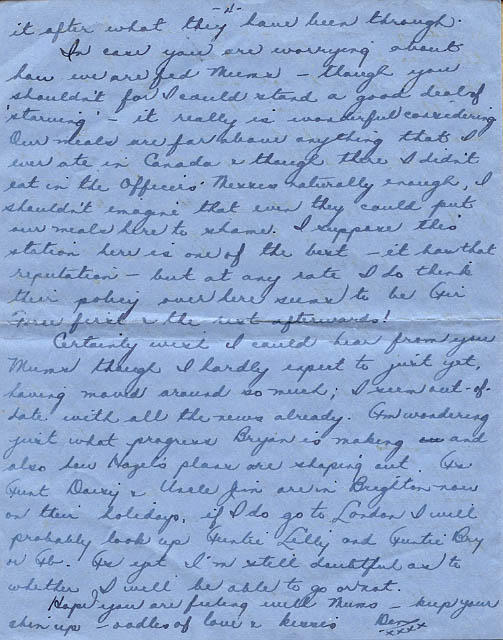 -4-
it after what they have been through.
In case you are worrying about
how we are fed Mums - though you
shouldn't for I could stand a good deal of
'starving' - it really is wonderful considering
Our meals are far above anything that I
ever ate in Canada & though there I didn't
eat in the Officers' Messes naturally enough, I
shouldn't imagine that even they could put
our meals here to shame. I suppose this
station here is one of the best - it has that
reputation - but at any rate I do think
their policy over here seems to be Air
Force first & the rest afterwards!
Certainly wish I could hear from you
Mums though I hardly expect to just yet,
having moved around so much; I seem out-of-
date with all the news already. Am wondering
just what progress Bryan is making and
also how Hazel's plans are shaping out. As
Aunt Daisy & Uncle Jim are in Brighton now
on their holidays, if I do go to London I will
probably look up Auntie Lilly and Auntie Bey
or Ab. As yet I'm still doubtful as to
whether I will be able to go or not.
Hope you are feeling well Mums - keep your
chin up - oodles of love & kisses Den
xxxx